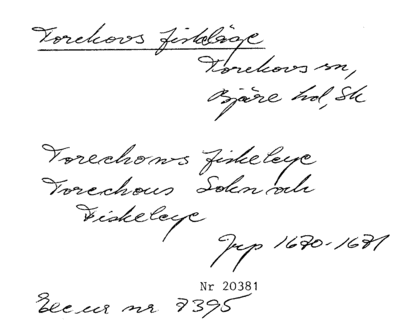 Torekovs fiskläge
Torekovs sn,
Bjäre hd, Sk
Torechows fiskeleye
Torechous Sokn och
Fiskeleye
Jrp 1670-1671
Nr 20381
Exc ur nr 7395